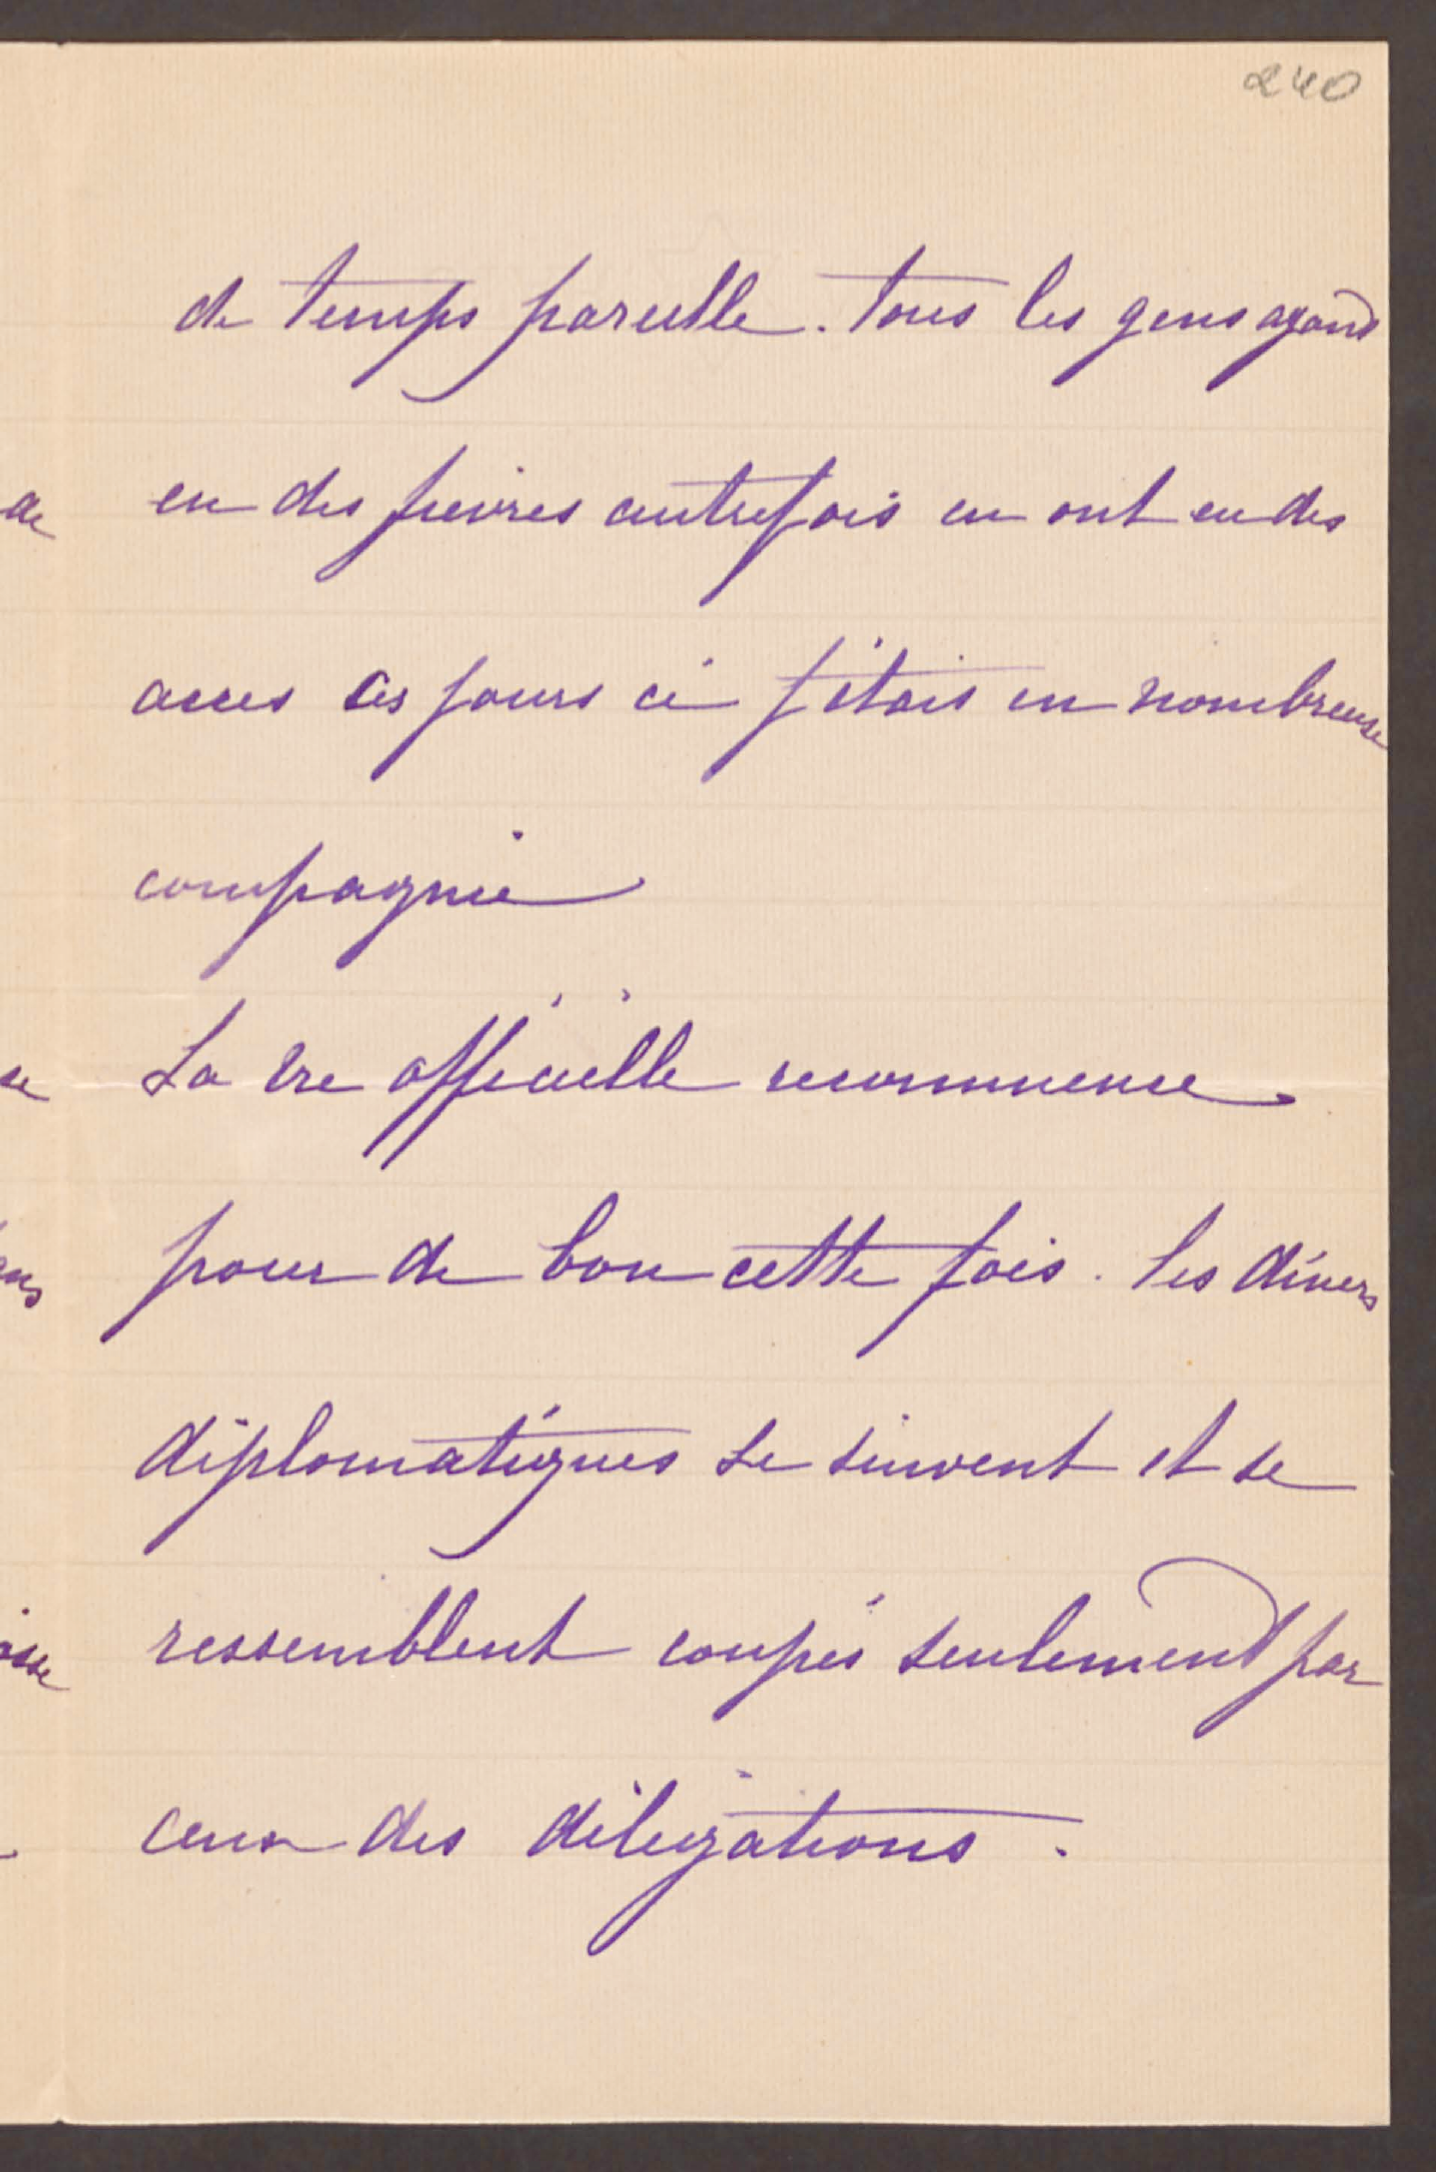 240
de temps pareille. tous les gens ayant
eu des fievres autrefois en ont eu des
acces ces jours ci j'étais en nombreuse
de
compagnie
La vie officielle recommence
se
pour de bon cette fois. les diners
diplomatiques se suivent et se
ressemblent coupés seulement par
ceux des délégations.